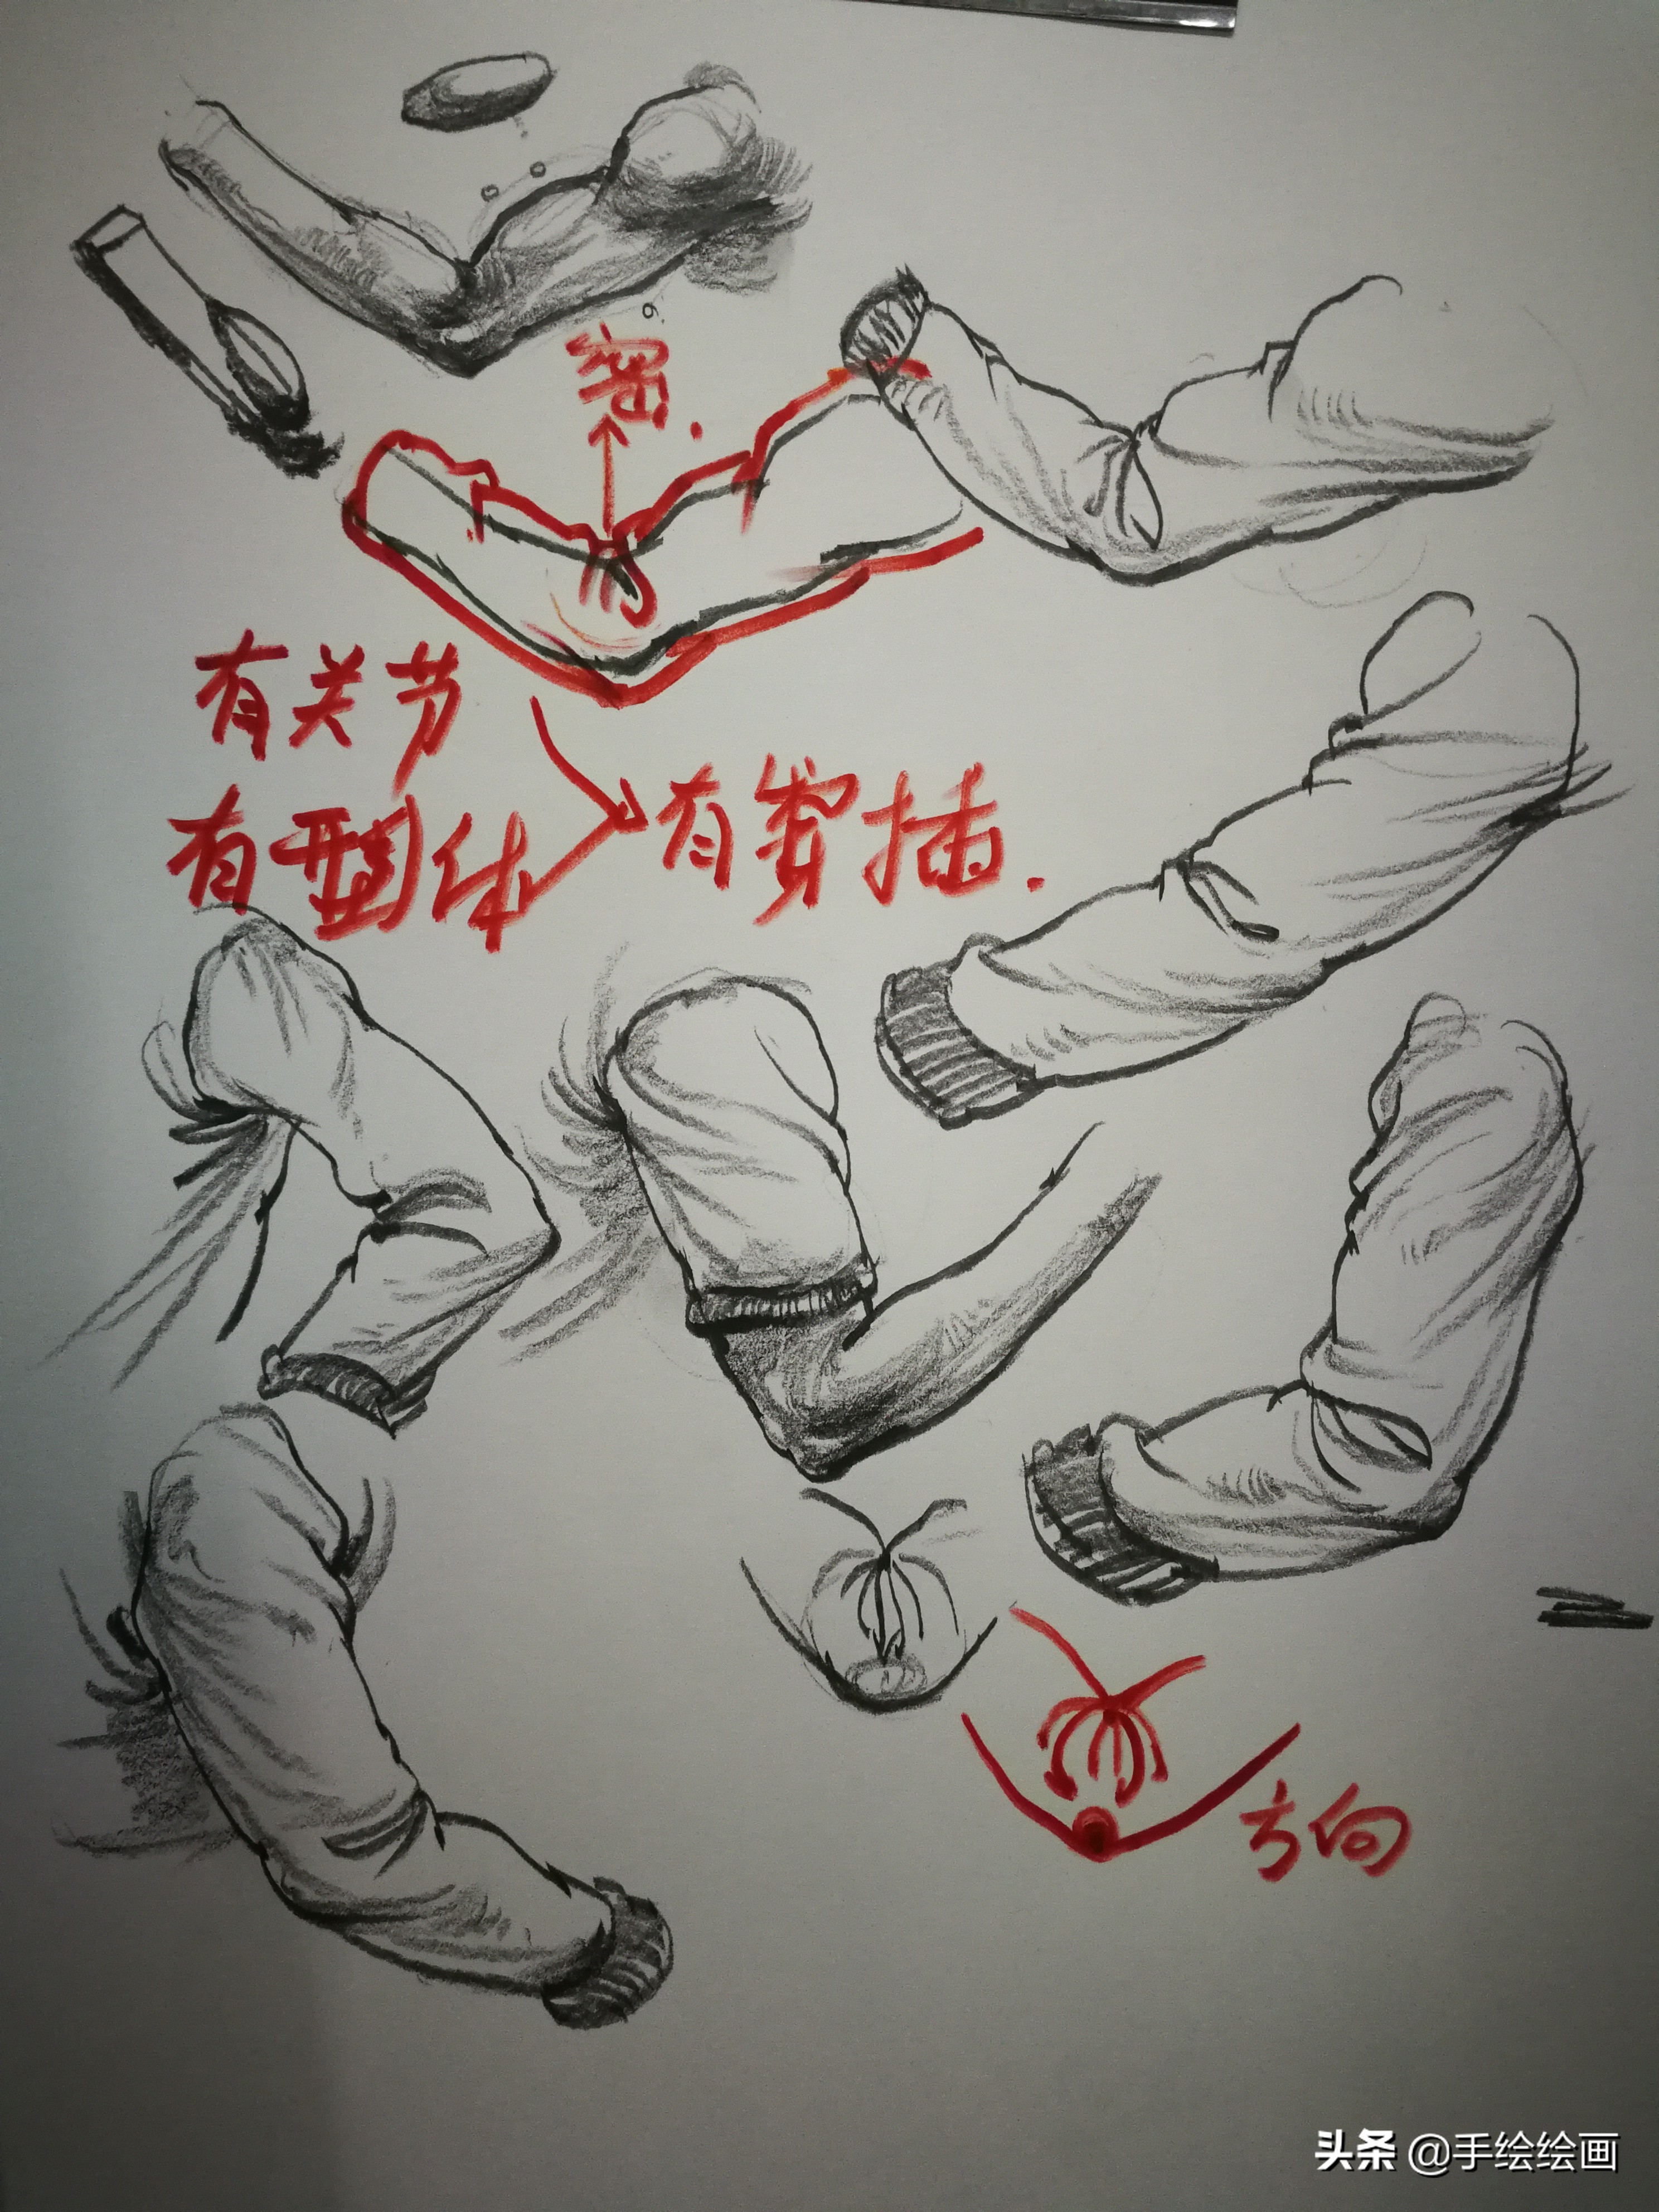 有关节
有型体
有穿插.
方向
头条 @手绘绘画